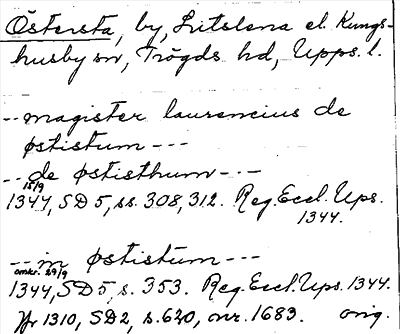 Östersta, by, Litslena el. Kungs-
husby sn, Trögds hd, Upps. l.
--magister laurencius de
østistum---
--de østisthum---
15/9
1344, SD 5, ss. 308, 312. Reg. Eccl. Ups.
1344.
--in østistum---
omkr. 29/9
1344, SD 5, s. 353. Reg. Eccl. Ups. 1344.
Jfr 1310, SD 2, s. 620, nr. 1683. orig.